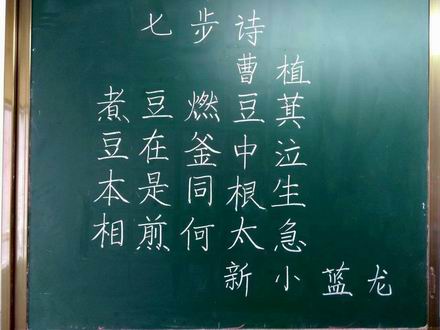 七步诗
曹植
煮豆燃豆萁
豆在釜中泣
本是同根生
相煎何太急
新小蓝龙